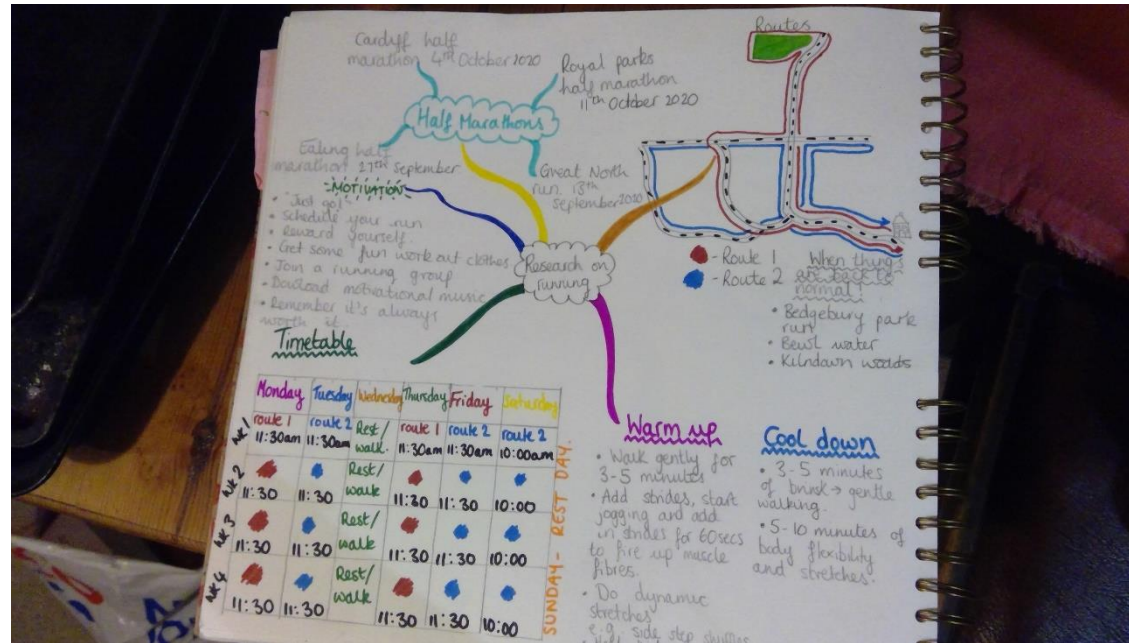 Cardiff half
marathon 4th October 2020
Royal parks
half marathon
11th October 2020
Half Marathons
Ealing half
marathon 27th September
Great North
run 13th
September 2020
MOTIVATION
• "Just go!"
• Schedule your run
• Reward yourself.
• Get some fun work out clothes
• Join a running group
• Download motivational music
• Remember it's always
worth it.
Research on
running
Routes
- Route 1
- Route 2
When things
are back to
normal:
• Bedgebury park
run
• Bewl water
• Kilndown woods
Timetable
Monday Tuesday Wednesday Thursday Friday Saturday
wk 1 route 1 route 2 Rest/ route 1 route 2 route 2
11:30am 11:30am walk. 11:30am 11:30am 10:00am
wk 2 Rest/
walk
11:30 11:30 11:30 11:30 10:00
wk 3 Rest/
walk
11:30 11:30 11:30 11:30 10:00
wk 4 Rest/
walk
11:30 11:30 11:30 11:30 10:00
SUNDAY - REST DAY.
Warm up
• Walk gently for
3-5 minutes
• Add strides, start
jogging and add
in strides for 60secs
to fire up muscle
fibres.
• Do dynamic
stretches
e.g. side step
Cool down
• 3-5 minutes
of brisk → gentle
walking.
• 5-10 minutes of
body flexibility
and stretches.